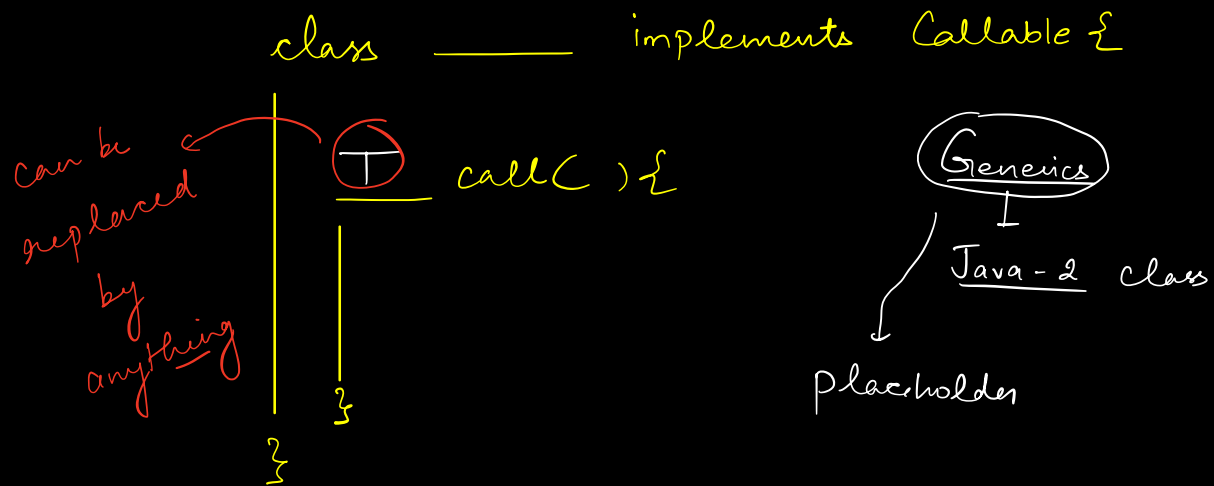 class ______ implements Callable {
T call( ) {
can be
replaced
by
anything
}
}
Generics
Java - 2 class
Placeholder